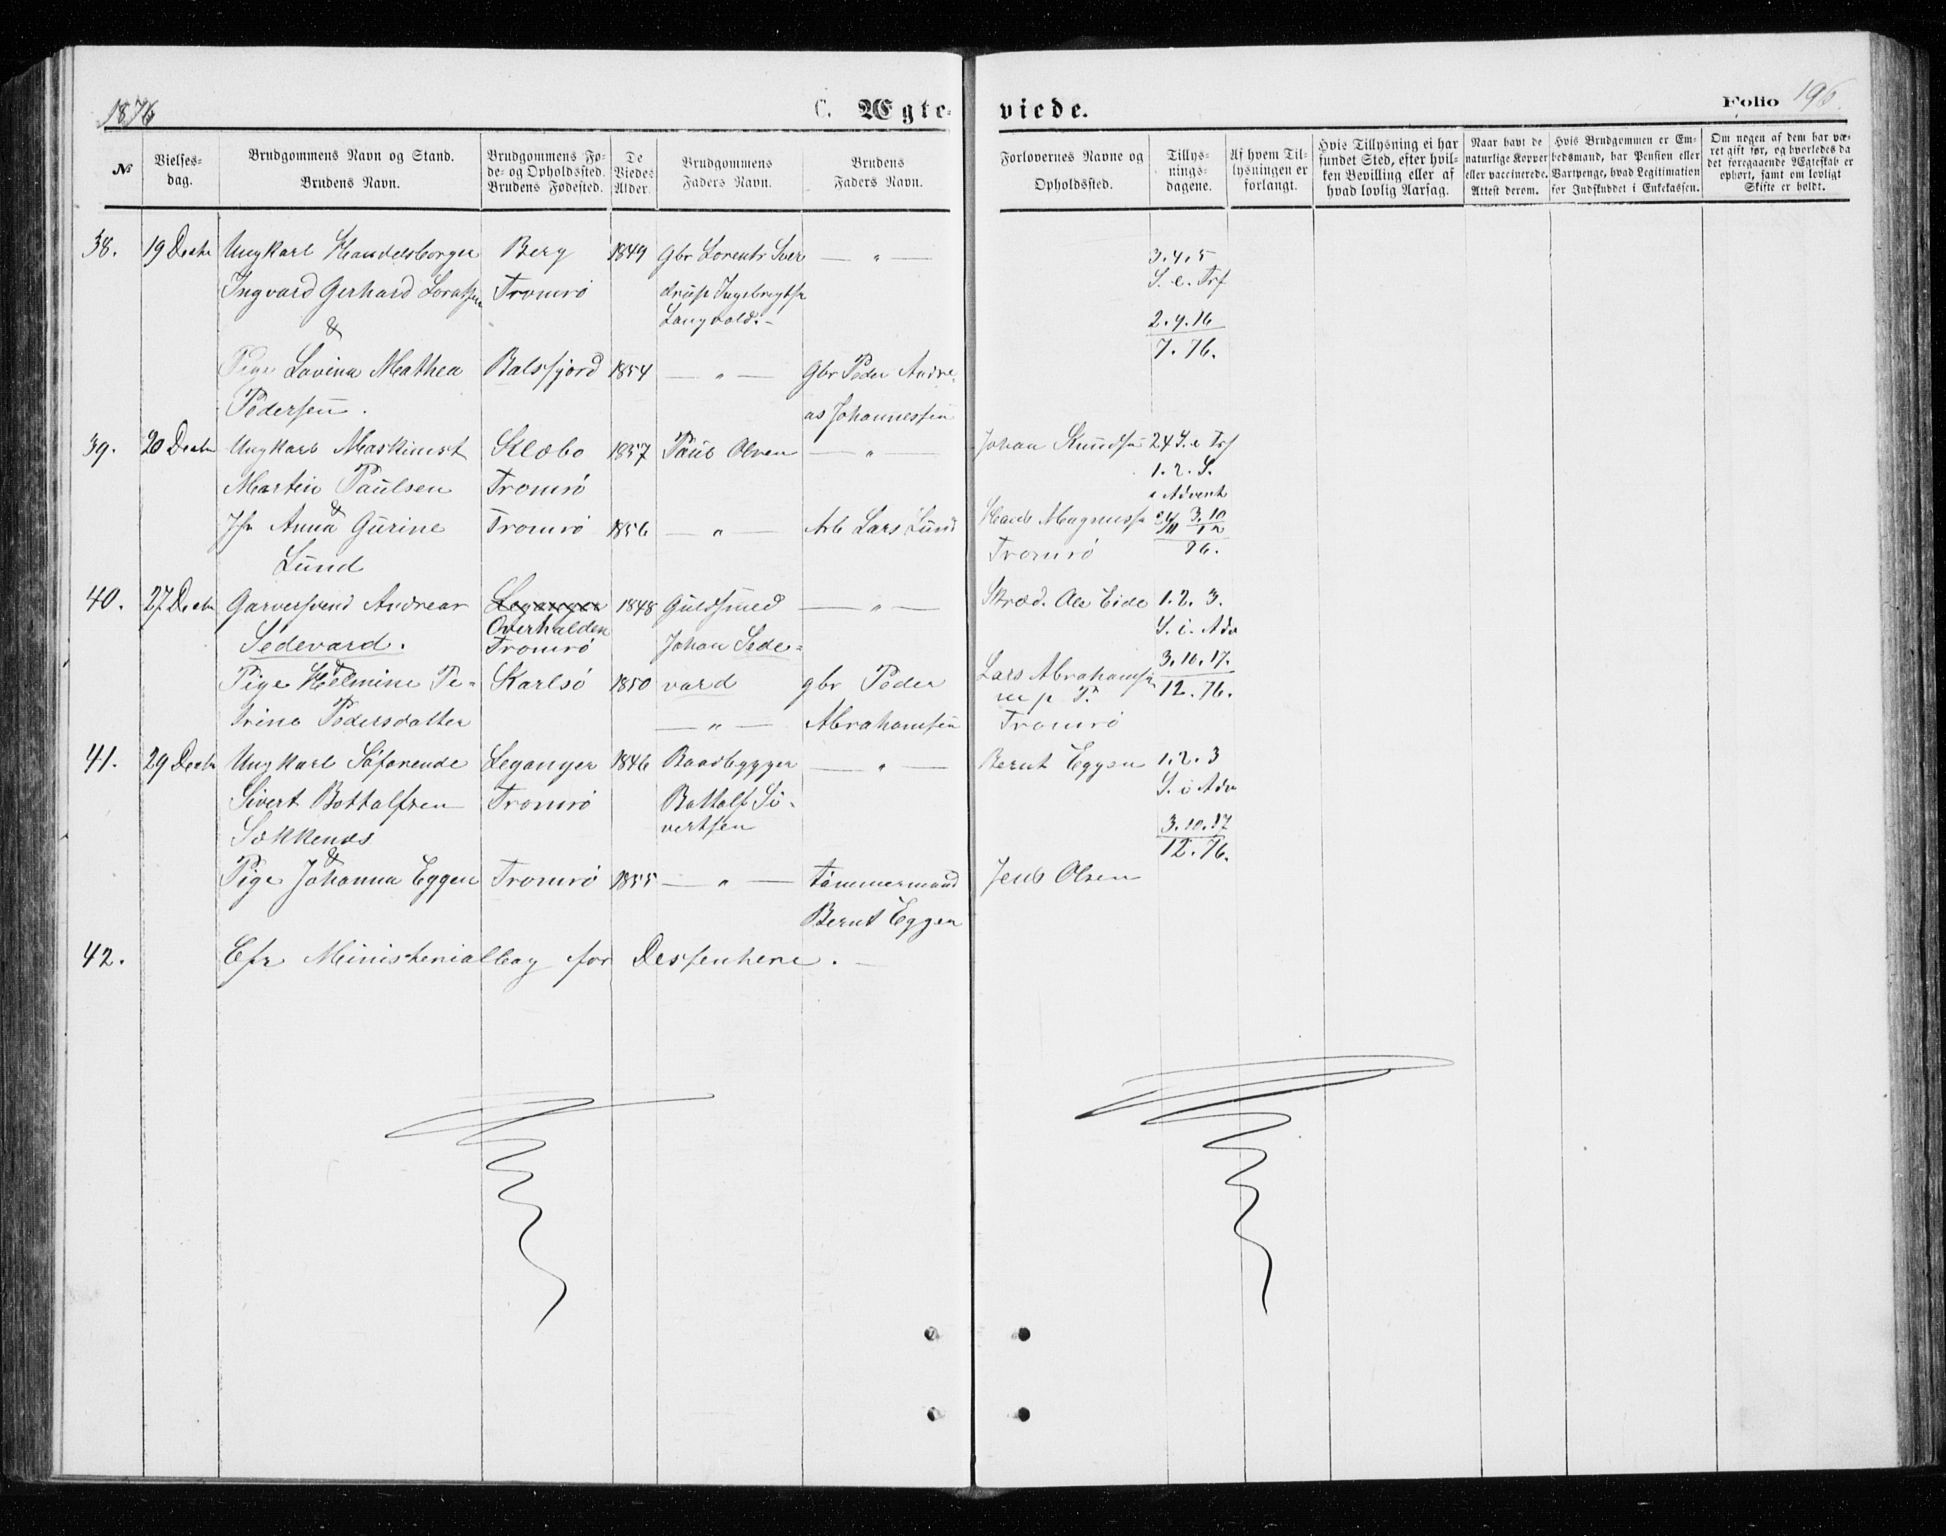 1876
C. Ægte-
viede.
Folio 196.
№
Vielses-
dag.
Brudgommens Navn og Stand.
Brudens Navn.
Brudgommens Fø-
de- og Opholdssted.
Brudens Fødested.
De
Viedes
Alder.
Brudgommens
Faders Navn.
Brudens
Faders Navn.
Forlovernes Navne og
Opholdssted.
Tillys-
nings-
dagene.
Af hvem Til-
lysningen er
forlangt.
Hvis Tillysning ei har
fundet Sted, efter hvil-
ken Bevilling eller af
hvad lovlig Aarsag.
Naar havt de
naturlige Kopper
eller vaccinerede.
Attest derom.
Hvis Brudgommen er Em-
bedsmand, har Pension eller
Vartpenge, hvad Legitimation
for Indskuddet i Enkekassen.
Om nogen af dem har væ-
ret gift før, og hvorledes da
det foregaaende Ægteskab er
ophørt, samt om lovligt
Skifte er holdt.
38. 19 Decbr Ungkarl Handelsborger Berg 1849 Gbr Lorents — " — 3.4.5
Ingvard Gerhard Tromsø Ingebrigts S. e. Trf
Langvold. 2.9.16
&
7.76.
Pige Lovina Mathea Balsfjord 1854 — " — Gbr Peder Andre-
Pedersen. as Johannessen
39. 20 Decbr Ungkarl Maskinist Klæbo 1857 Paul Olsen — " — Johan Knudsen 24 S. e Trf
Martin Paulsen Tromsø 1. 2. S.
i Advent
&
Jfr Anna Gurine Tromsø 1856 — " — Arb Lars Lund Magnus 3.10
Lund Tromsø 76.
40. 27 Decbr Garversvend Andreas Leganger 1848 Guldsmed — " — Skræd. Ole Eide 1. 2. 3.
Overhalden
Sedevard. Tromsø Johan Sede- S. i. Adv
&
3.10.17.
Pige Helmine Pe- Karlsø 1850 vard gbr Peder Lars Abrahamsen 12.76.
trine Pedersdatter — " — Abrahamsen m p P.
Tromsø
41. 29 Decbr Ungkarl Søfarende Leganger 1846 Baadbygger — " — Bernt Eggen 1. 2. 3
Sivert Bottolfsen Tromsø Bottolf Si- S. i Adv
Sækkenes vertsen 3.10.17
&
12.76.
Pige Johanna Eggen Tromsø 1855 — " — Tømmermand Jens Olsen
Bernt Eggen
42. Cfr Ministerialbog for Dissentere. —